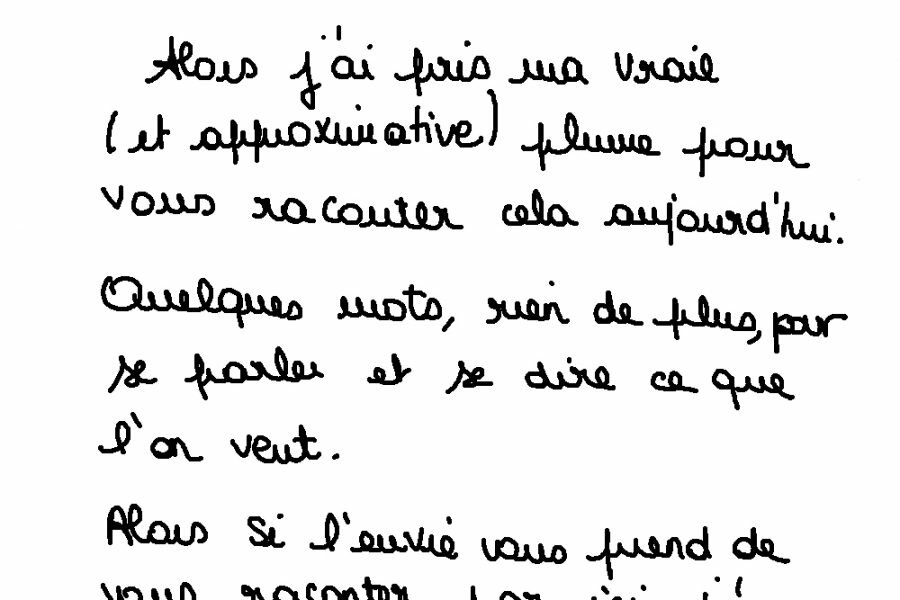 Alors j'ai pris ma vraie
(et approximative) plume pour
vous raconter cela aujourd'hui.
Quelques mots, rien de plus, pour
se parler et se dire ce que
l'on veut.
Alors si l'envie vous prend de
vous raconter par ici